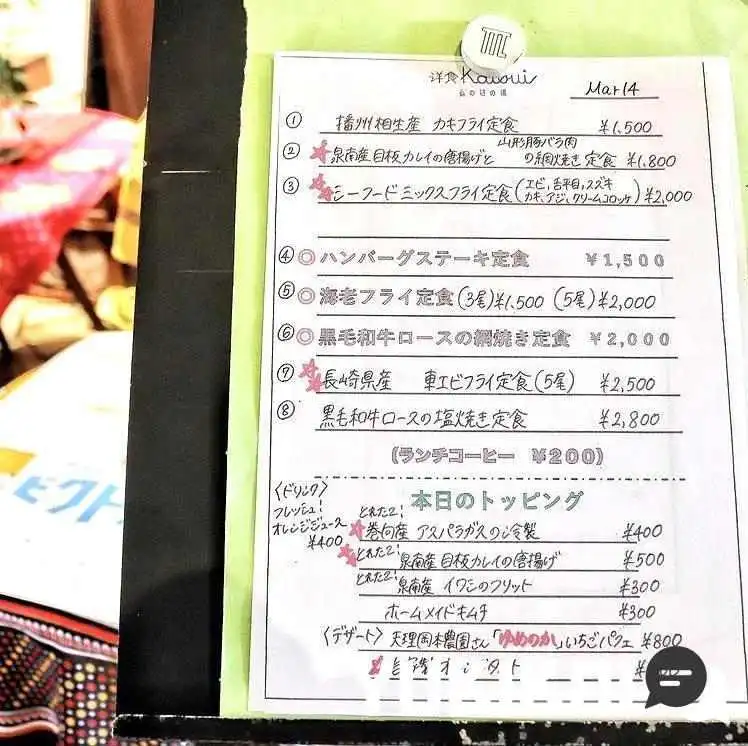 洋食 Katsui
山の辺の道
Mar 14
① 播州相生産 カキフライ定食 ¥1,500
② 泉南産目板カレイの唐揚げと 山形豚バラ肉の網焼き定食 ¥1,800
③ シーフードミックスフライ定食(エビ,舌平目,スズキ カキ,アジ,クリームコロッケ) ¥2,000
④ ◎ ハンバーグステーキ定食 ¥1,500
⑤ ◎ 海老フライ定食(3尾)¥1,500 (5尾)¥2,000
⑥ ◎ 黒毛和牛ロースの網焼き定食 ¥2,000
⑦ 長崎県産 車エビフライ定食(5尾) ¥2,500
⑧ 黒毛和牛ロースの塩焼き定食 ¥2,800
(ランチコーヒー ¥200)
〈ドリンク〉
フレッシュ!
オレンジジュース
¥400
本日のトッピング
とれたて! 巻向産 アスパラガスの冷製 ¥400
とれたて! 泉南産目板カレイの唐揚げ ¥500
とれたて! 泉南産 イワシのフリット ¥300
ホームメイドキムチ ¥300
〈デザート〉天理岡本農園さん「ゆめのか」いちごパフェ ¥800
ビクト